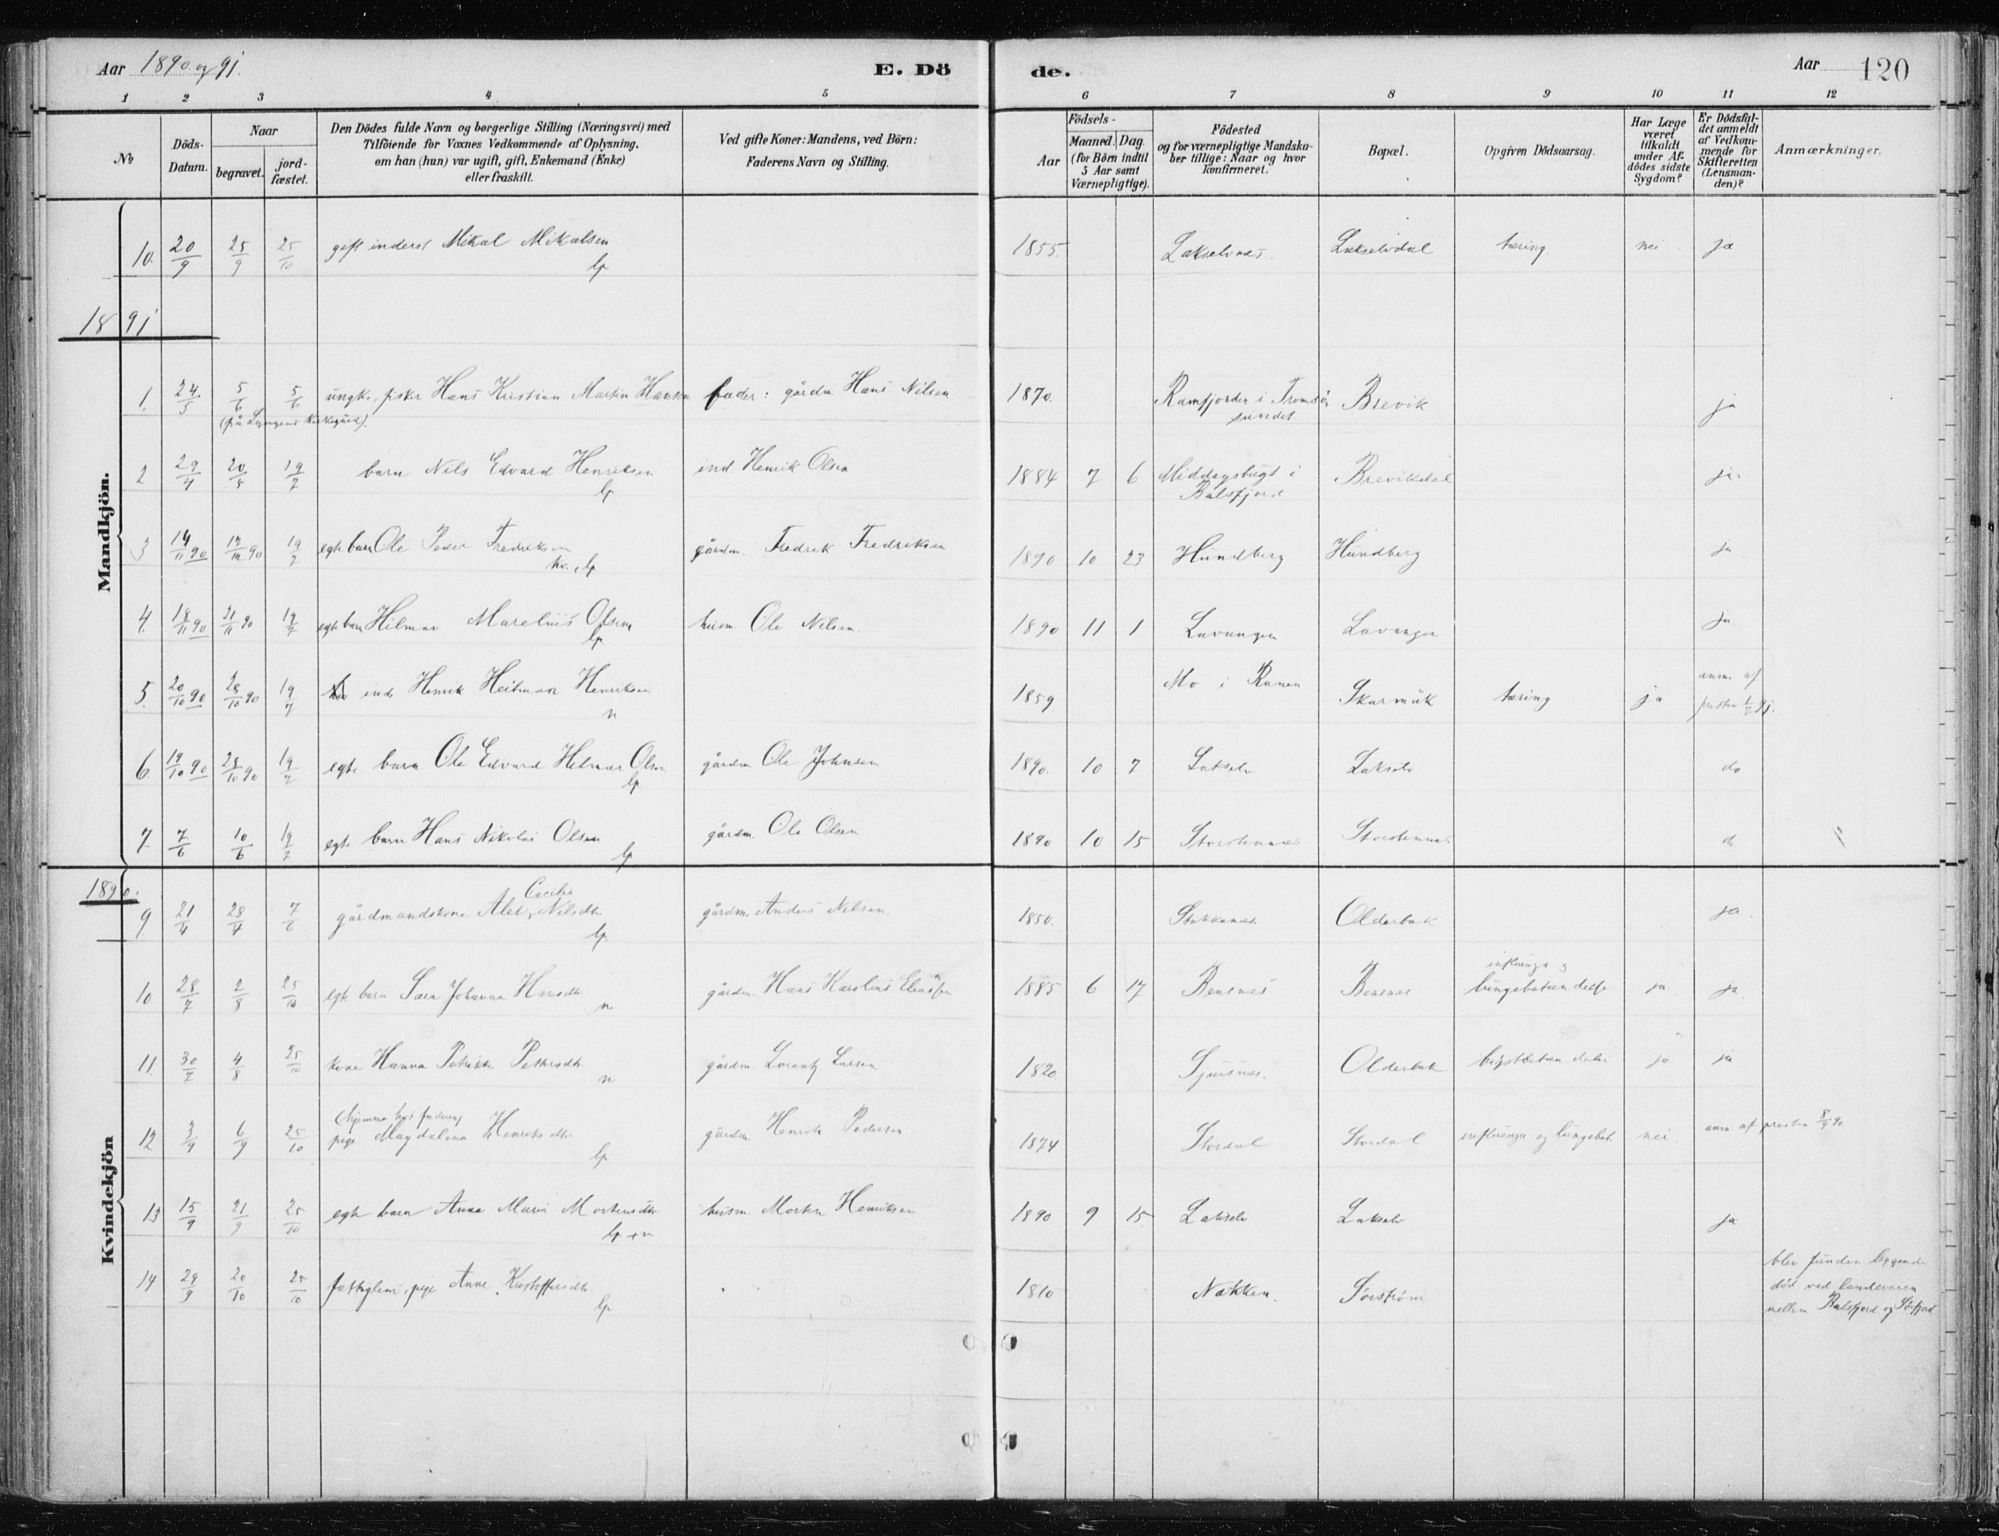 Aar 1890 og 91. E. Dö de. Aar 120
1 2 3 4 5 6 7 8 9 10 11 12
No
Döds-Datum.
Naar
begravet. jord-fæstet.
Den Dödes fulde Navn og borgerlige Stilling (Næringsvei) med
Tilföiende for Voxnes Vedkommende af Oplysning,
om han (hun) var ugift, gift, Enkemand (Enke)
eller fraskilt.
Ved gifte Koner: Mandens, ved Börn:
Faderens Navn og Stilling.
Födsels-
Aar
Maaned. Dag.
(for Börn indtil
5 Aar samt
Værnepligtige).
Födested
og for værnepligtige Mandska-
ber tillige: Naar og hvor
konfirmeret.
Bopæl.
Opgiven Dödsaarsag.
Har Læge
været
tilkaldt
under Af-
dödes sidste
Sygdom?
Er Dödsfal-
det anmeldt
af Vedkom-
mende for
Skifteretten
(Lensman-
den)?
Anmærkninger.
Mandkjön.
10. 20/9 25/9 25/10 gift inderst Mikal Mikalsen lp 1855. Lakselvnes. Lakselvdal tæring nei ja
1891
1. 24/5 5/6 5/6 ungk. fisker Hans Kristian Martin Hansen fader: gårdm Hans Nilsen 1870. Ramfjorden i Tromsö Brevik ja
(på Lyngens kirkegård). sundet
2 29/4 20/5 19/7 barn Nils Edvard Henriksen lp ind Henrik Olsen 1884 7 6 Middagsbugt i Balsfjord Brevikdal ja
3 14/11 90 17/11 90 19/7 egte barn Ole Peder Fredriksen lp gårdm. Fredrik Fredriksen 1890 10 23 Hundberg Hundberg ja
4. 18/11 90 21/11 90 19/7 egte barn Hilmar Marelius Olsen lp husm Ole Nilsen. 1890 11 1 Lavangen Lavangen ja
5. 20/10 90 28/10 90 19/7 ind. Henrik Heitman Henriksen n 1859 Mo i Ranen Skarmük tæring ja anm. af presten 91.
6. 19/10 90 28/10 90 19/7 egte barn Ole Edvard Helmer Olsen lp gårdm Ole Johnsen 1890. 10 7 Lakselv Lakselv do
7. 7/6 10/6 19/7 egte barn Hans Nikolai Olsen lp gårdm. Ole Olsen 1890 10 15 Storstennes Storstennes do
Kvindekjön
1890.
9. 21/4 28/4 7/6 gårdmandskone Alet Cecilie Nilsdtr lp. gårdm. Anders Nilsen. 1850. Stakkenes Olderbak ja.
10 28/7 2/8 25/10 egte barn Sara Johanna Hansdtr. n gårdm. Hans Karelius Eliasen 1885 6 17 Bensnes Bensnes influenza og lungebetændelse ja ja.
11. 30/7 4/8 25/10 kone Hanna Petrikke Petersdtr. n gårdm. Lorentz Larsen 1820 Sjursnes. Olderbak ja ja
12 3/9 6/9 25/10 (hjemme hos faderen) pige Magdalena Henriksdtr lp gårdm. Henrik Pedersen 1874 Stordal Stordal influenza og lungebet. nei. anm. af presten 8/9 90
13 15/9 21/9 25/10 egte barn Anna Maria Mortensdtr lp + n husm. Morten Henriksen 1890 9 15. Lakselv Lakselv ja
14 29/9 20/10 25/10 fattiglem, pige Anne Kristoffersdtr. lp 1810 Nakken. Sörström blev funden liggende
död ved landeveien
mellem Balsfjord og Sörfjord